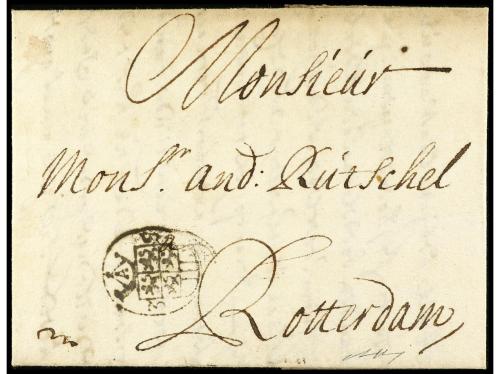 Monsieur
Monsr. and: Rütschel
Rotterdam